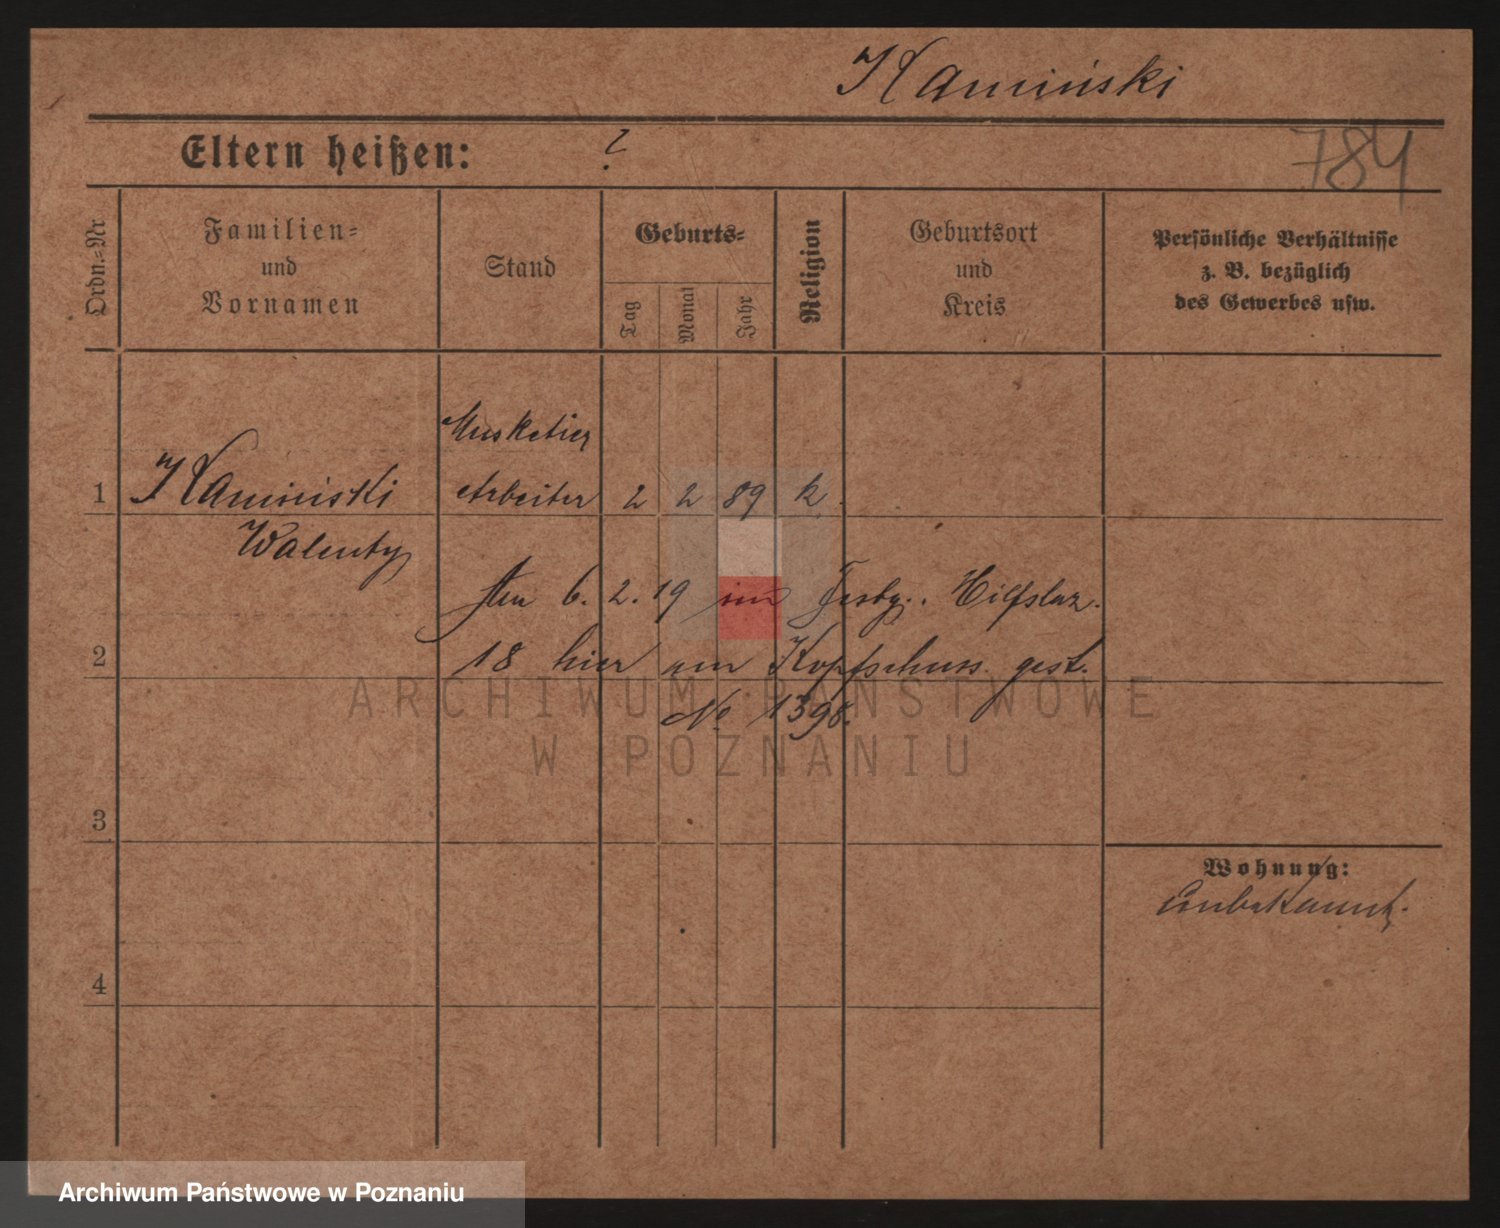 Kamiński
Eltern heißen: ?
784
Ordn.=Nr
Familien=
und
Vornamen
Stand
Geburts=
Tag
Monat
Jahr
Religion
Geburtsort
und
Kreis
Persönliche Verhältnisse
z. B. bezüglich
des Gewerbes usw.
Musketier
1 Kaminiski Arbeiter 2 2 89 k.
Walenty
Am 6. 2. 19 im Festg. Hilfslaz.
2 18 hier am Kopfschuss gest.
No 1398.
ARCHIWUM PAŃSTWOWE
W POZNANIU
3
Wohnung:
Unbekannt.
4
Archiwum Państwowe w Poznaniu